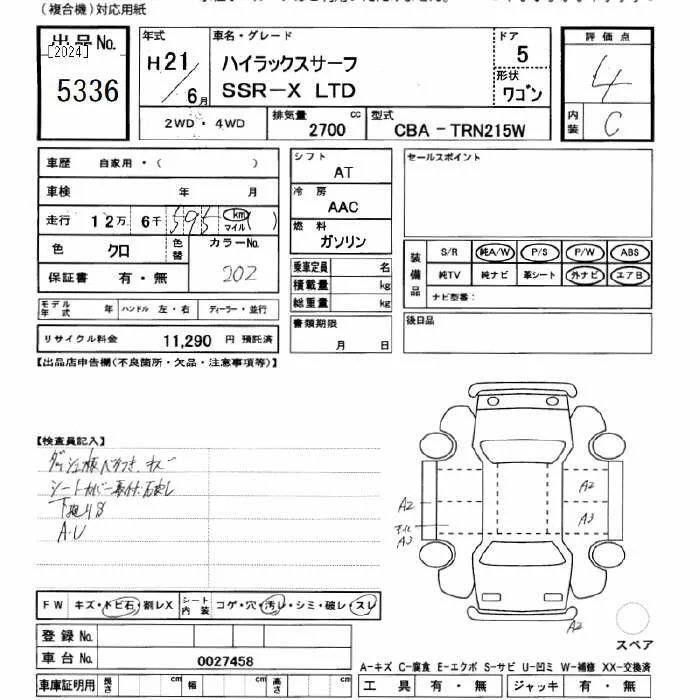 （複合機）対応用紙
出品No.
[2024]
5336
年式
H21
6月
車名・グレード
ハイラックスサーフ
SSR-X LTD
ドア
5
形状
ワゴン
評価点
4
内装
C
2WD・4WD
排気量
2700
cc
型式
CBA－TRN215W
車歴 自家用・（ ）
車検 年 月
走行 12万 6千 595 km マイル ( )
色 クロ
色替
カラーNo.
202
保証書 有・無
モデル年式 年
ハンドル 左・右
ディーラー・並行
リサイクル料金 11,290 円 預託済
シフト
AT
冷房
AAC
燃料
ガソリン
乗車定員 名
積載量 kg
総重量 kg
書類期限
月 日
セールスポイント
装備品
S/R 純A/W P/S P/W ABS
純TV 純ナビ 革シート 外ナビ エアB
ナビ型番：
後日品
【出品店申告欄(不良箇所・欠品・注意事項等)】
【検査員記入】
ダッシュ板ベタつき キズ
シートカバー
下廻りS
A.U
A2
A3
A2
A3
A2
FW キズ・トビ石・割レX
シート内装 コゲ・穴・汚レ・シミ・破レ・スレ
登録No.
車台No. 0027458
スペア
A－キズ C－腐食 E－エクボ S－サビ U－凹ミ W－補修 XX－交換済
車庫証明用 長さ cm 幅 cm 高さ cm
工具 有・無 ジャッキ 有・無